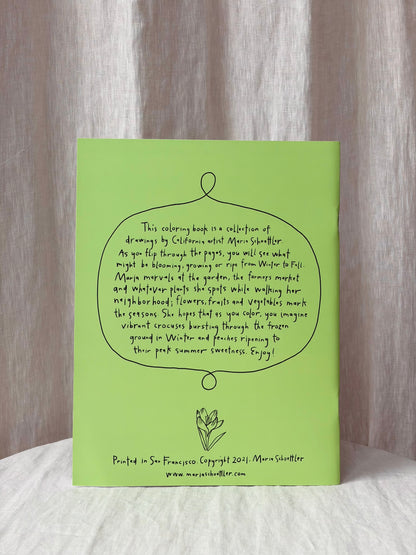 This coloring book is a collection of
drawings by California artist Maria Schoettler.
As you flip through the pages, you will see what
might be blooming, growing or ripe from Winter to Fall.
Maria marvels at the garden, the farmers market
and whatever plants she spots while walking her
neighborhood; flowers, fruits and vegetables mark
the seasons. She hopes that as you color, you imagine
vibrant crocuses bursting through the frozen
ground in Winter and peaches ripening to
their peak summer sweetness. Enjoy!
Printed in San Francisco Copyright 2021. Maria Schoettler
www.mariaschoettler.com